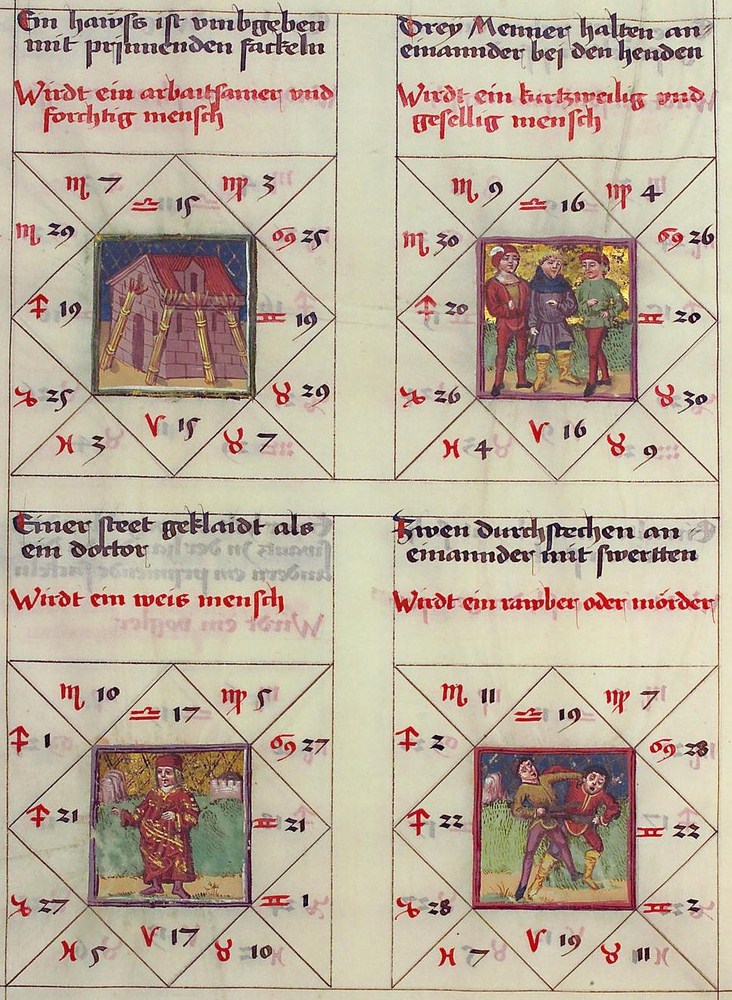 Ein hawss ist vmbgeben
mit prinnenden fackeln
Wirdt ein arbaitsamer vnd
forchtig mensch
♏ 7
♎ 15
♍ 3
♏ 29
♋ 25
♐ 19
♊ 19
♑ 25
♉ 29
♓ 3
♈ 15
♉ 7
Drey Menner halten an=
einannder bei den henden
Wirdt ein kurtzweilig vnd
gesellig mensch
♏ 9
♎ 16
♍ 4
♏ 30
♋ 26
♐ 20
♊ 20
♑ 26
♉ 30
♓ 4
♈ 16
♉ 9
Einer steet geklaidt als
ein doctor
Wirdt ein weis mensch
♏ 10
♎ 17
♍ 5
♐ 1
♋ 27
♐ 21
♊ 21
♑ 27
♊ 1
♓ 5
♈ 17
♉ 10
Zwen durchstechen an=
einannder mit swertten
Wirdt ein rawber oder mörder
♏ 11
♎ 19
♍ 7
♐ 2
♋ 28
♐ 22
♊ 22
♑ 28
♊ 2
♓ 7
♈ 19
♉ 11